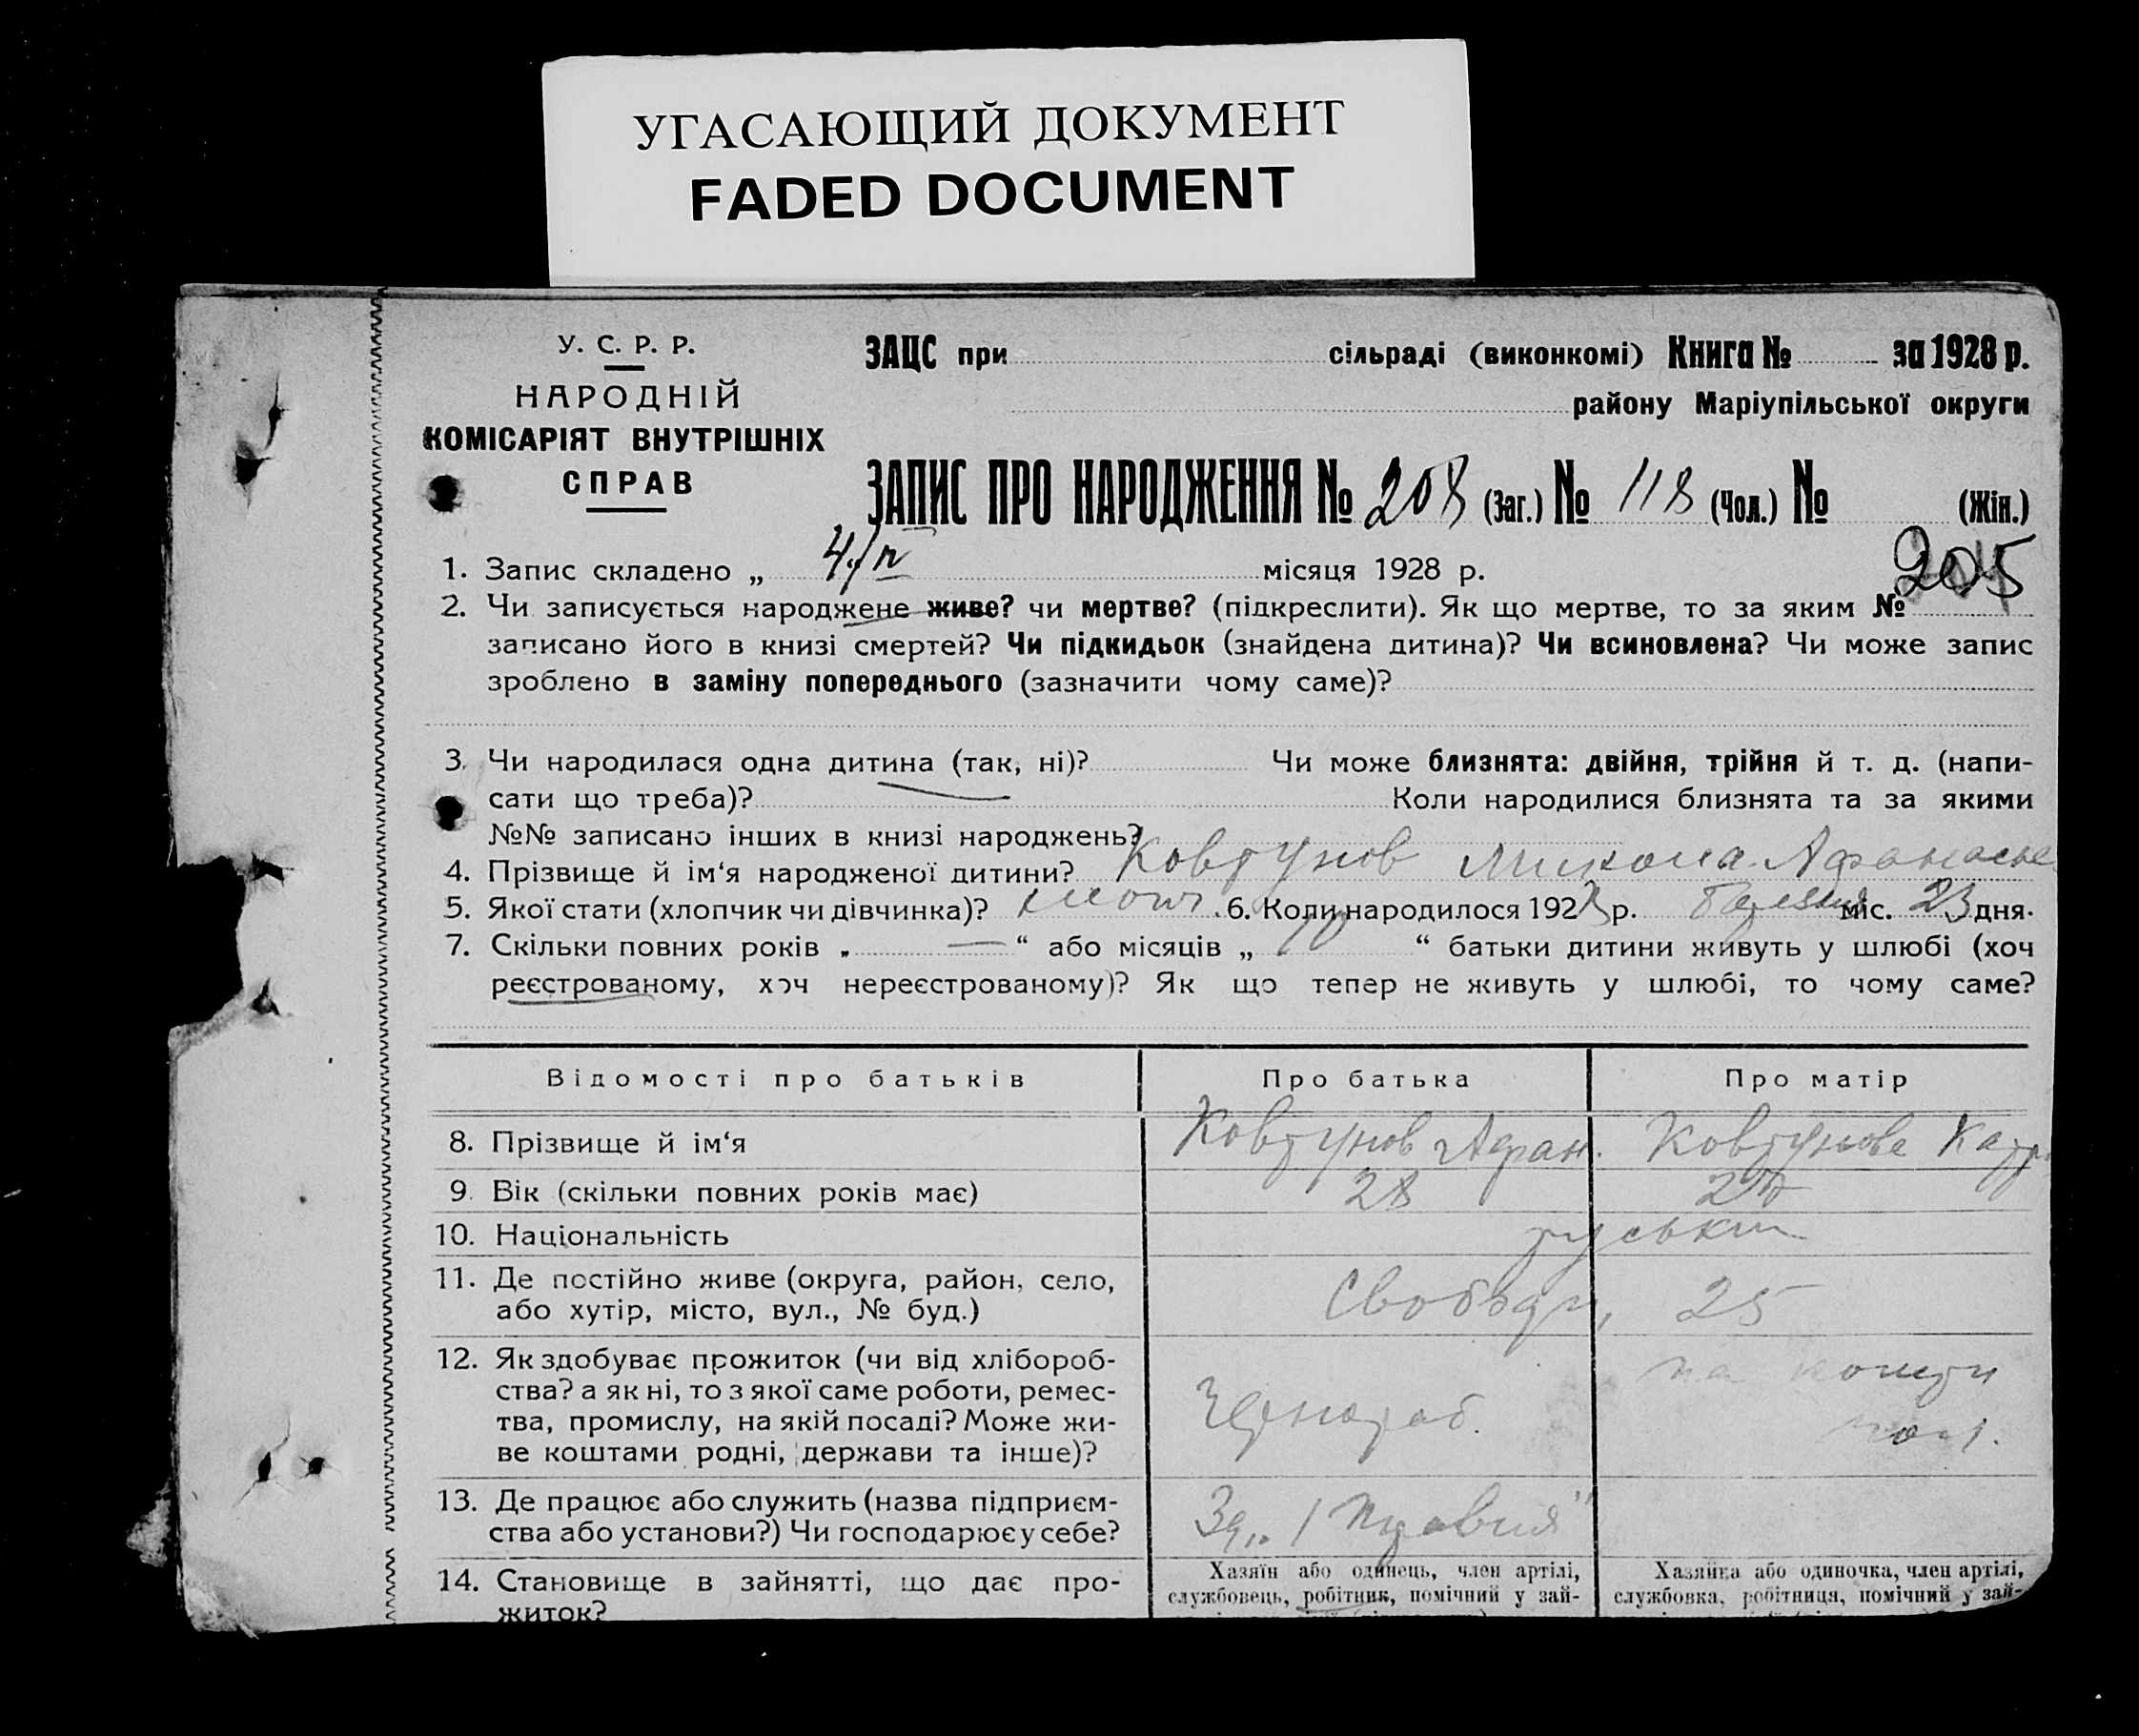 УГАСАЮЩИЙ ДОКУМЕНТ
FADED DOCUMENT
У. С. Р. Р.
НАРОДНІЙ
КОМІСАРІЯТ ВНУТРІШНІХ
СПРАВ
ЗАЦС при сільраді (виконкомі) Книга № за 1928 р.
району Маріупільської округи
ЗАПИС ПРО НАРОДЖЕННЯ № 208 (Заг.) № 118 (Чол.) № (Жін.)
1. Запис складено „ 4/IV місяця 1928 р.
205
2. Чи записується народжене живе? чи мертве? (підкреслити). Як що мертве, то за яким №
записано його в книзі смертей? Чи підкидьок (знайдена дитина)? Чи всиновлена? Чи може запис
зроблено в заміну попереднього (зазначити чому саме)?
3. Чи народилася одна дитина (так, ні)? Чи може близнята: двійня, трійня й т. д. (напи-
сати що треба)? Коли народилися близнята та за якими
№№ записано інших в книзі народжень?
4. Прізвище й ім‘я народженої дитини? Ковтунов Микола Афанасьев
5. Якої стати (хлопчик чи дівчинка)? хлоп. 6. Коли народилося 1928 р. березня міс. 23 дня.
7. Скільки повних років „ — “ або місяців „ 10 “ батьки дитини живуть у шлюбі (хоч
реєстрованому, хоч нереєстрованому)? Як що тепер не живуть у шлюбі, то чому саме?
Відомості про батьків Про батька Про матір
8. Прізвище й ім‘я Ковтунов Афан. Ковтунова Катр.
9. Вік (скільки повних років має) 28 20
10. Національність руськи
11. Де постійно живе (округа, район, село, Свободи, 25
або хутір, місто, вул., № буд.)
12. Як здобуває прожиток (чи від хлібороб-
ства? а як ні, то з якої саме роботи, ремес-
тва, промислу, на якій посаді? Може жи-
ве коштами родні, держави та інше)?
Чернораб.
на кошти
чол.
13. Де працює або служить (назва підприєм-
ства або установи?) Чи господарює у себе?
Зд. „Правия"
14. Становище в зайнятті, що дає про-
житок?
Хазяїн або одинець, член артілі,
службовець, робітник, помічний у зай-
Хазяйка або одиночка, член артілі,
службовка, робітниця, помічний у зай-